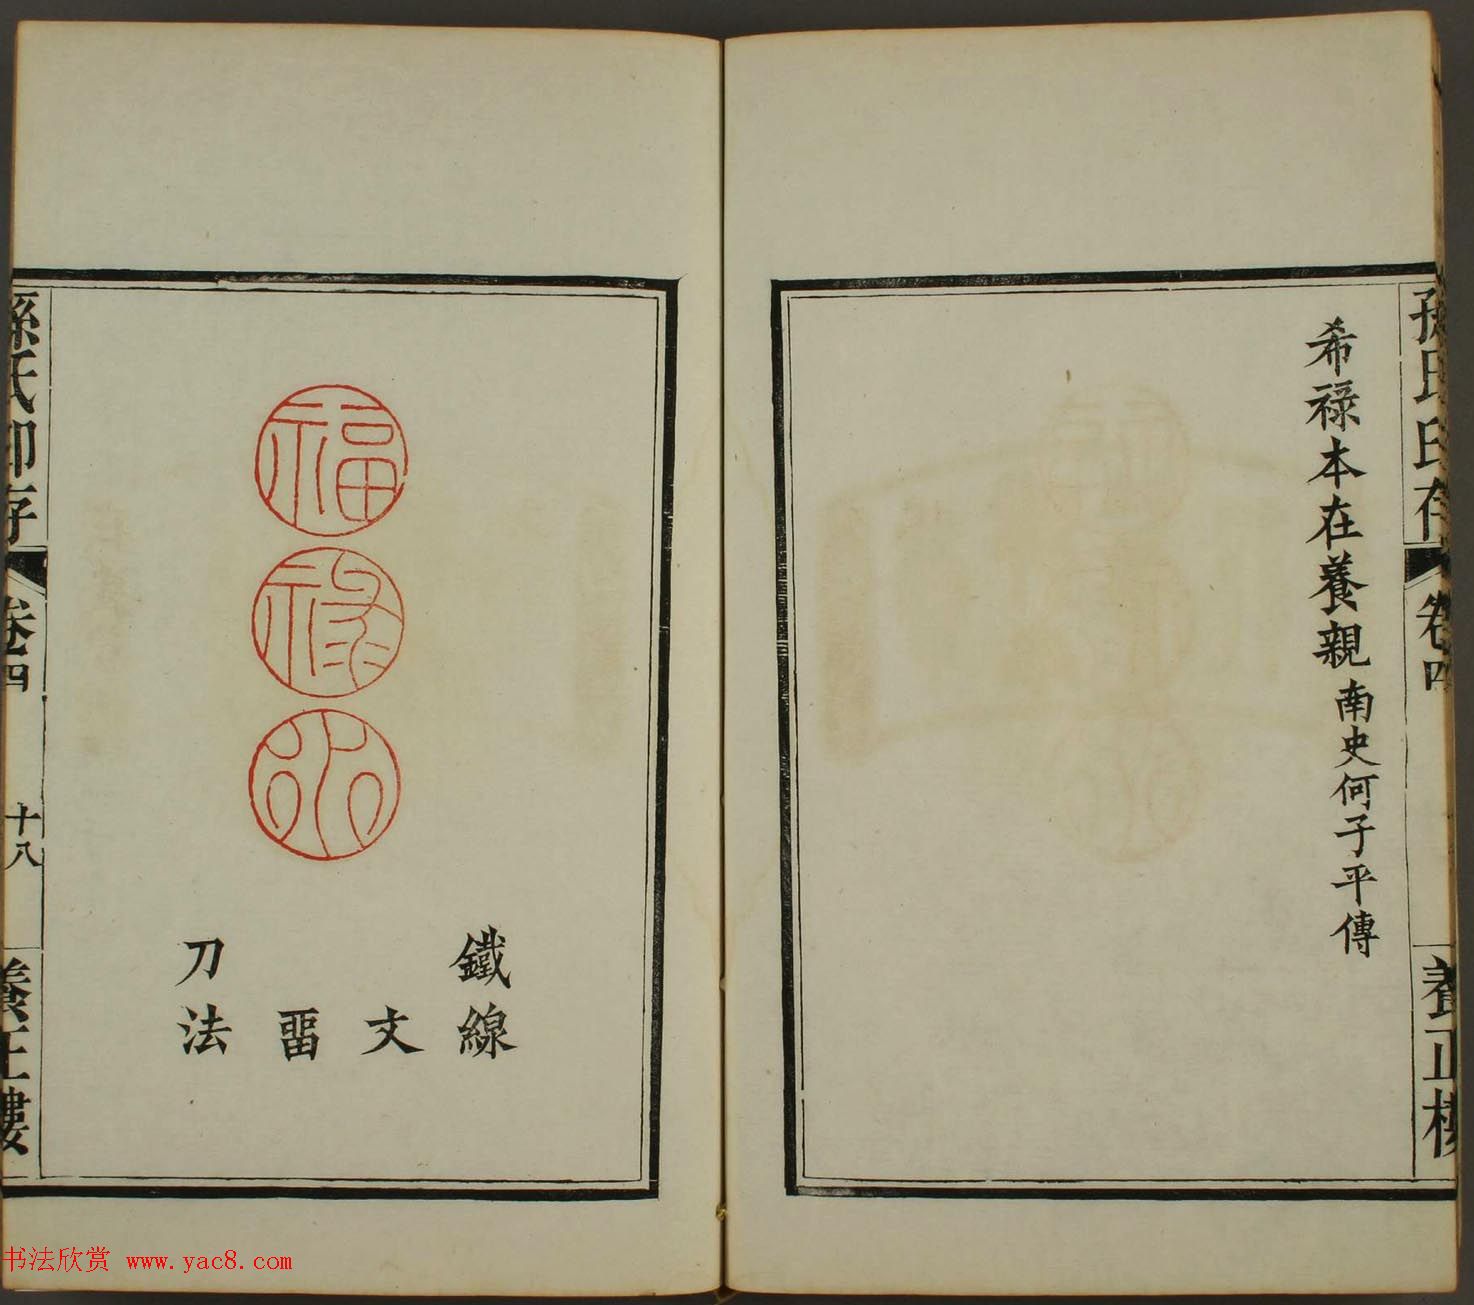 孫氏印存
卷四
養正樓
希祿本在養親 南史何子平傳
福
祿
鐵線
文
畱
刀法
孫氏印存
卷四
十八
養正樓
书法欣赏 www.yac8.com